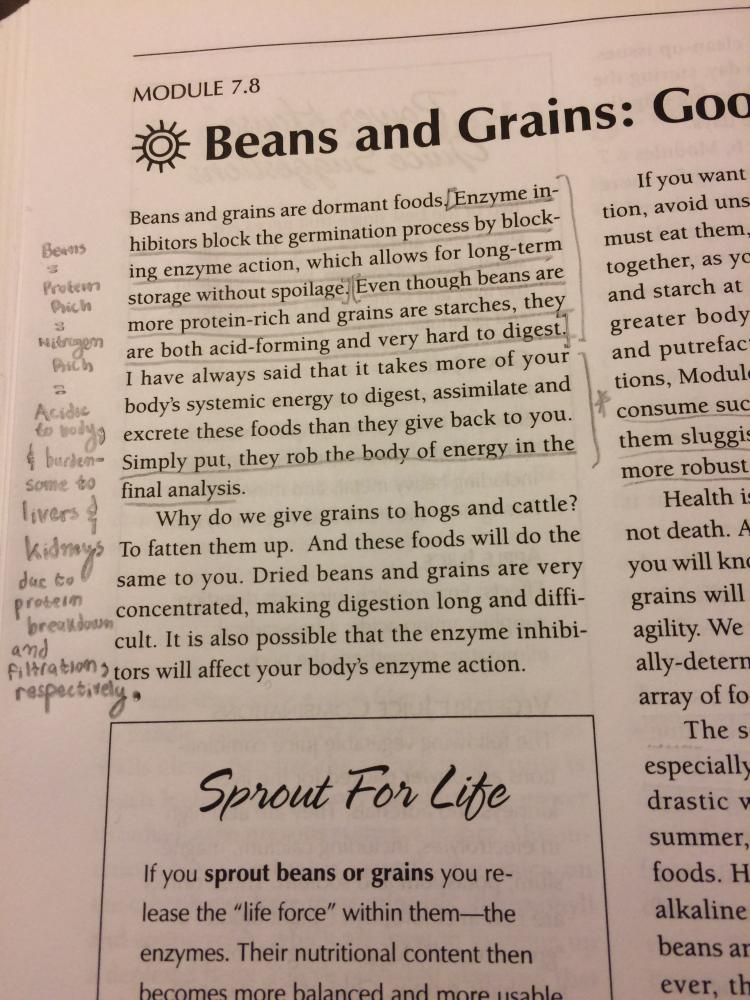 MODULE 7.8
Beans and Grains: Goo
Beans and grains are dormant foods. Enzyme in-
hibitors block the germination process by block-
ing enzyme action, which allows for long-term
storage without spoilage. Even though beans are
more protein-rich and grains are starches, they
are both acid-forming and very hard to digest.
I have always said that it takes more of your
body's systemic energy to digest, assimilate and
excrete these foods than they give back to you.
Simply put, they rob the body of energy in the
final analysis.
Why do we give grains to hogs and cattle?
To fatten them up. And these foods will do the
same to you. Dried beans and grains are very
concentrated, making digestion long and diffi-
cult. It is also possible that the enzyme inhibi-
tors will affect your body's enzyme action.
Beans
=
Protein
Rich
=
Nitrogen
Rich
=
Acidic
to body
& burden-
some to
livers &
kidneys
due to
protein
breakdown
and
filtration,
respectively.
Sprout For Life
If you sprout beans or grains you re-
lease the “life force” within them—the
enzymes. Their nutritional content then
becomes more balanced and more usable
If you want
tion, avoid uns
must eat them,
together, as yo
and starch at
greater body
and putrefac
tions, Module
consume suc
them sluggis
more robust
Health is
not death. A
you will kno
grains will
agility. We
ally-determ
array of fo
The s
especially
drastic w
summer,
foods. H
alkaline
beans ar
ever, th